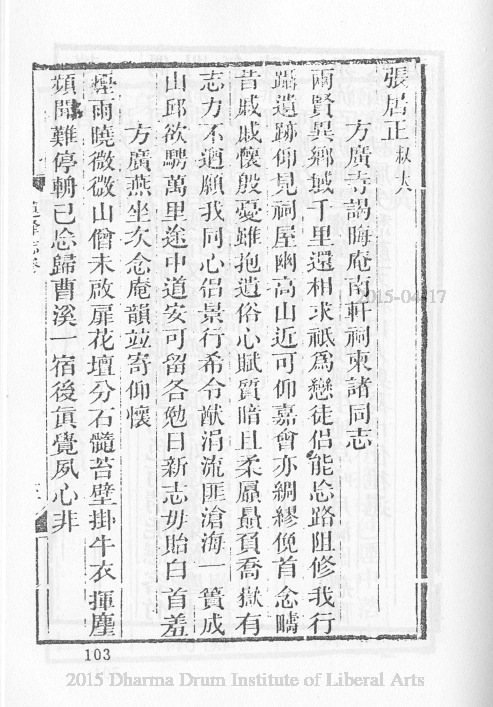 張居正叔大
方廣寺謁晦庵南軒祠柬諸同志
兩賢異鄉域千里還相求祇為戀徒侶能忘路阻修我行
躡遺跡仰見祠屋幽高山近可仰嘉會亦綢繆俛首念疇
昔戚戚懷殷憂雖抱遺俗心賦質暗且柔屭贔負喬嶽有
志力不遒願我同心侶景行希令猷涓流匪滄海一簣成
山邱欲騁萬里途中道安可留各勉日新志毋貽白首羞
方廣燕坐次念庵韻竝寄仰懷
煙雨曉微微山僧未啟扉花壇分石髓苔壁掛牛衣揮塵
頻聞難停輈已忘歸曹溪一宿後眞覺夙心非
103
2015-04-17
2015 Dharma Drum Institute of Liberal Arts